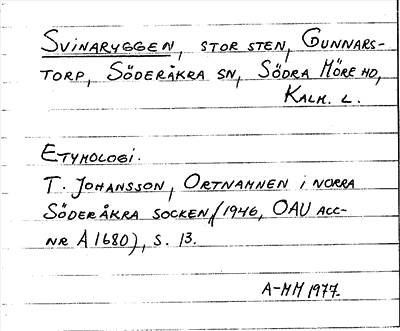 SVINARYGGEN, STOR STEN, GUNNARS-
TORP, SÖDERÅKRA SN, SÖDRA MÖRE HD,
KALM. L.
ETYMOLOGI.
T. JOHANSSON, ORTNAMNEN I NORRA
SÖDERÅKRA SOCKEN (1946, OAU ACC-
NR A 1680), S. 13.
A-MM 1977.